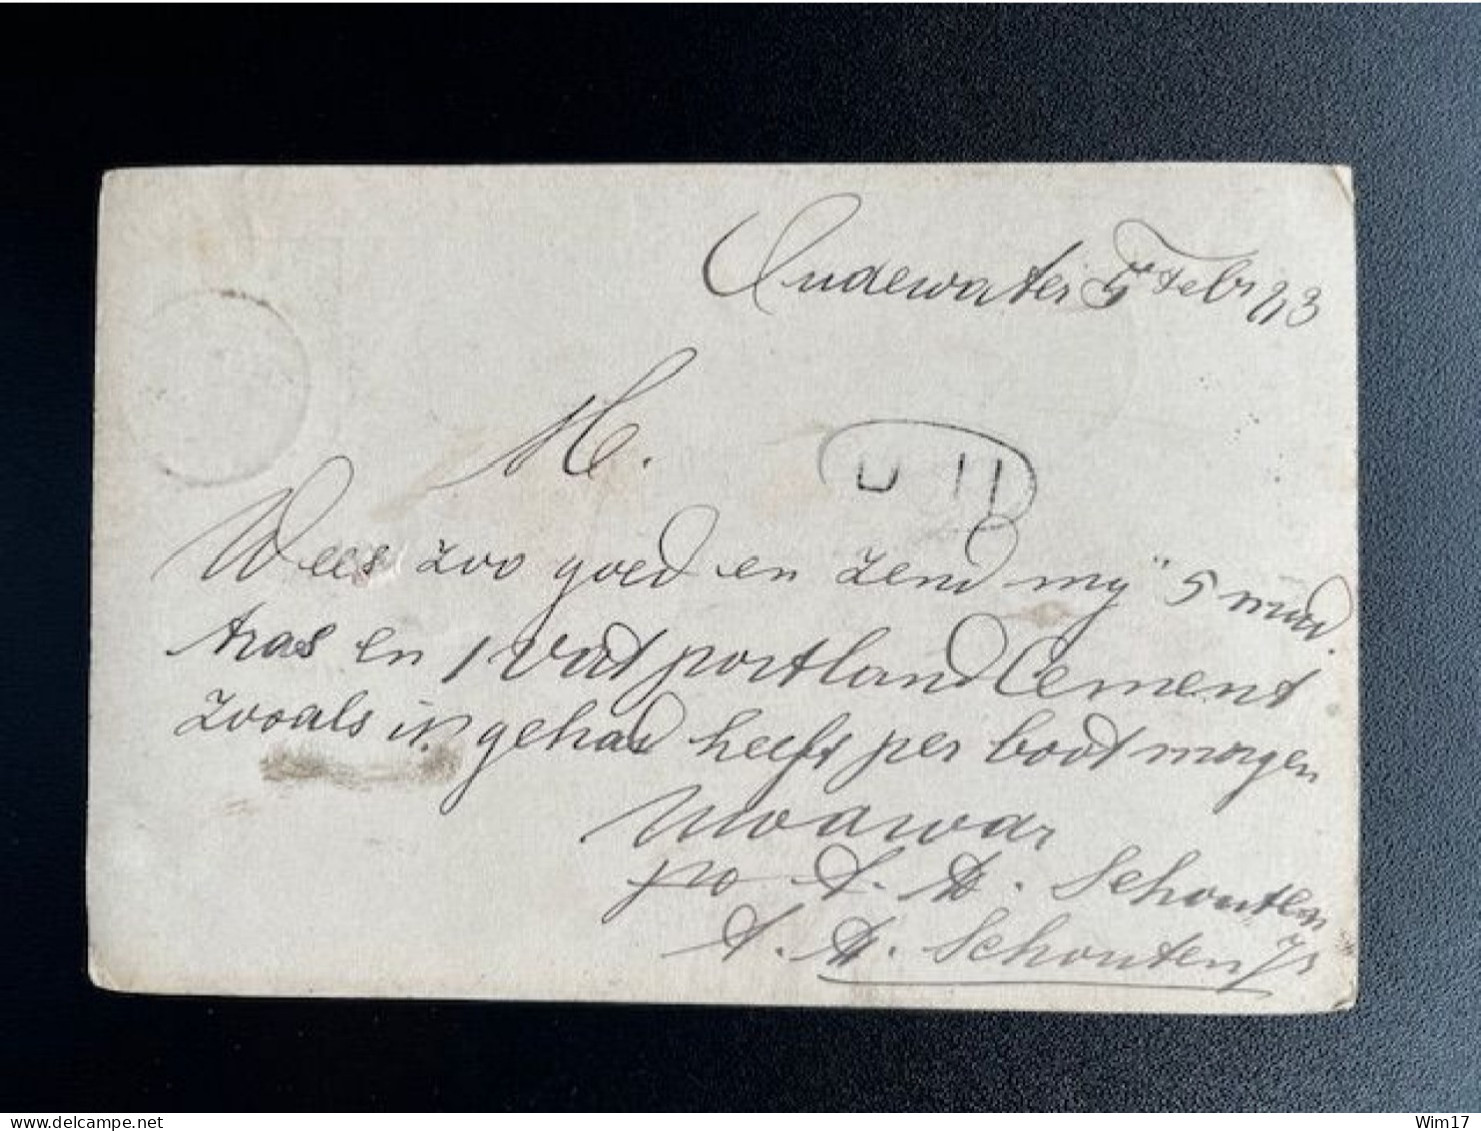 Oudewater 5e Febr 93
M.
Wees zoo goed en zend mij 5 mud
tras en 1 Vat portland Cement
zooals ik gehad heeft per boot morgen
UWdwdr
po A. H. Schouten
A. H. Schouten Jr
Wim17